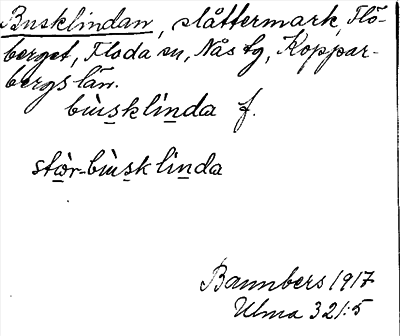 Busklindan, slåttermark, Flö-
berget, Floda sn, Nås tg, Koppar-
bergs län.
bùsklìnda f.
stòr-bùsklìnda
Bannbers 1917
Ulma 321:5